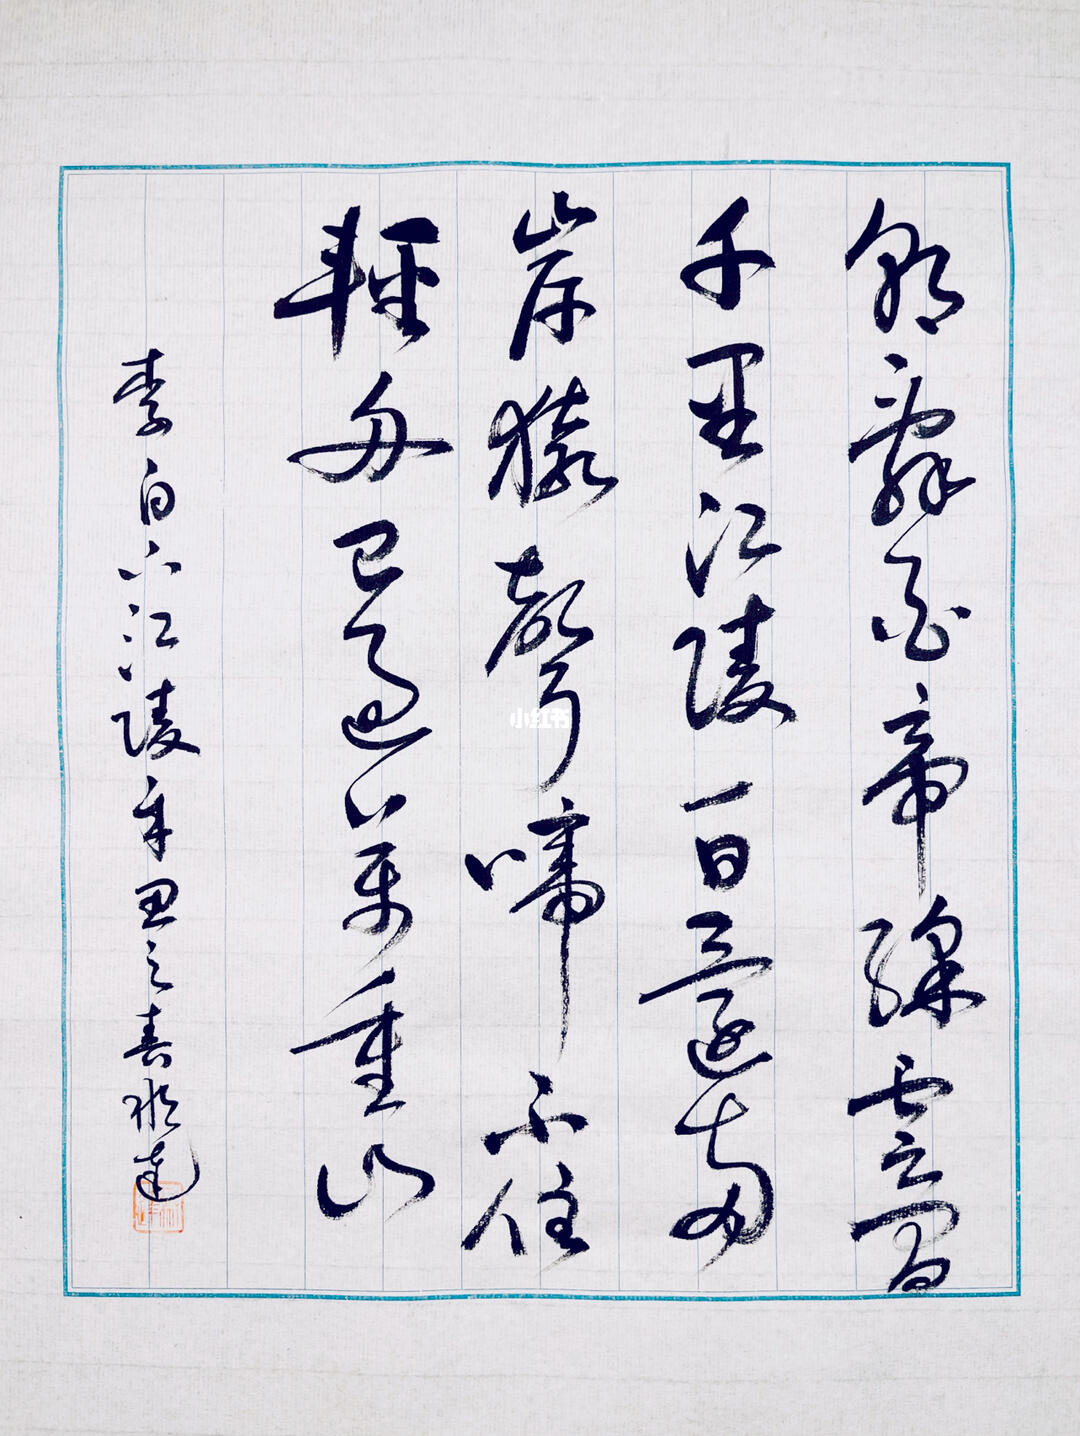 朝辭白帝綵雲間
千里江陵一日還兩
岸猿聲啼不住
輕舟已過萬重山
李白下江陵辛丑之春達
小红书